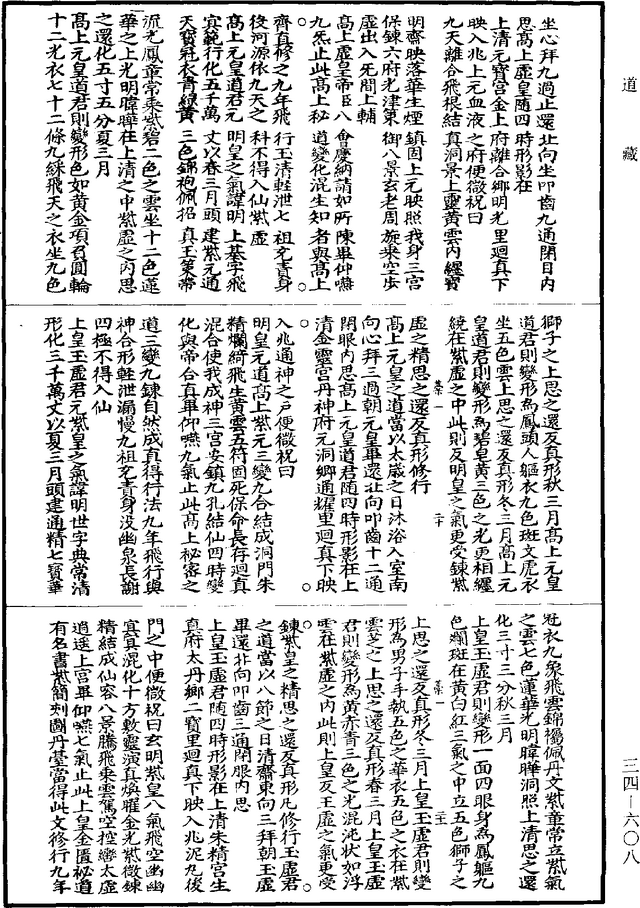 道藏
坐心拜九過止還北向坐叩齒九通閉目內
思高上虛皇隨四時形影在
上清元寶宮金上府離合鄉明光里迴真下
映入兆上元血液之府便微祝曰
九天離合飛根結真洞景上靈黃雲內經寶
明齋映落華生煙鎮固上元映照我身三宮
保鍊六府光津策御八景玄老周旋乘空步
虛出入无間上輔
高上虛皇帝臣八會慶納請如所陳畢仰嚥
九炁止此高上秘道變化混生知者與高上
齊真修之九年飛行玉清輕泄七祖充責身
後河源依九天之科不得入仙紫虛
高上元皇道君元明皇之氣諱明上基字飛
賓範行化五千萬丈以春三月頭建紫元通
天寶冠衣青綠黃三色錦袍佩招真玉策帶
流光鳳章常乘紫碧二色之雲坐十二色蓮
華之上光明暐曄在上清之中紫虛之內思
之還化五寸五分夏三月
高上元皇道君則變形色如黃金項召圓輪
十二光衣七十二條九綵飛天之衣坐九色
獅子之上思之還反真形秋三月高上元皇
道君則變形為鳳頭人軀衣九色斑文虎衣
坐五色雲上思之還反真形冬三月高上元
皇道君則變形為碧皇黃三色之光更相纏
繞在紫虛之中此則反明皇之氣更受鍊紫
虛之精思之還反真形修行
高上元皇之道當以太歲之日沐浴入室南
向心拜三過朝元皇畢還北向叩齒十二通
閉眼內思高上元皇道君隨四時形影在上
清金靈宮丹神府元洞鄉通耀里迴真下映
入兆通神之戶便微祝曰
明皇元道高上紫元三變九合結成洞門朱
精爛綺飛生黃雲五符固死保命長存迴真
混合使我成神三宮安鎮九孔結仙四時變
化與帝合真畢仰嚥九氣止此高上秘密之
道三變九鍊自然成真得行法九年飛行與
神合形輕泄漏慢九祖充責身没幽泉長謝
四極不得入仙
上皇玉虛君元紫皇之氣諱明世字典常清
形化三千萬丈以夏三月頭建通精七寶華
冠衣九象飛雲錦襦佩丹文紫章常立紫氣
之雲七色蓮華光明暐曄洞照上清思之還
化三寸三分秋三月
上皇玉虛君則變形一面四眼身為鳳軀九
色斕斑在黃白紅三氣之中立五色獅子之
上思之還反真形冬三月上皇玉虛君則變
形為男子手執五色之華衣五色之衣在紫
雲芝之上思之還反真形春三月上皇玉虛
君則變形為黃赤青三色之光混沌狀如浮
雲在紫虛之內此則上皇反玉虛之氣更受
鍊紫皇之精思之還反真形凡修行玉虛君
之道當以八節之日清齋東向三拜朝玉虛
畢還北向叩齒三通閉眼內思
上皇玉虛君隨四時形影在上清朱精宮生
真府太丹鄉二寶里迴真下映入兆泥丸後
門之中便微祝曰玄明紫皇八氣飛空幽幽
冥冥混化十方敷靈演真煥曜金光紫微鍊
精結成仙容八景騰飛乘雲駕空控轡太虛
逍遙上宮畢仰嚥七氣止此上皇金匱秘道
有名書紫簡刻圖丹臺當得此文修行九年
三四—六〇八